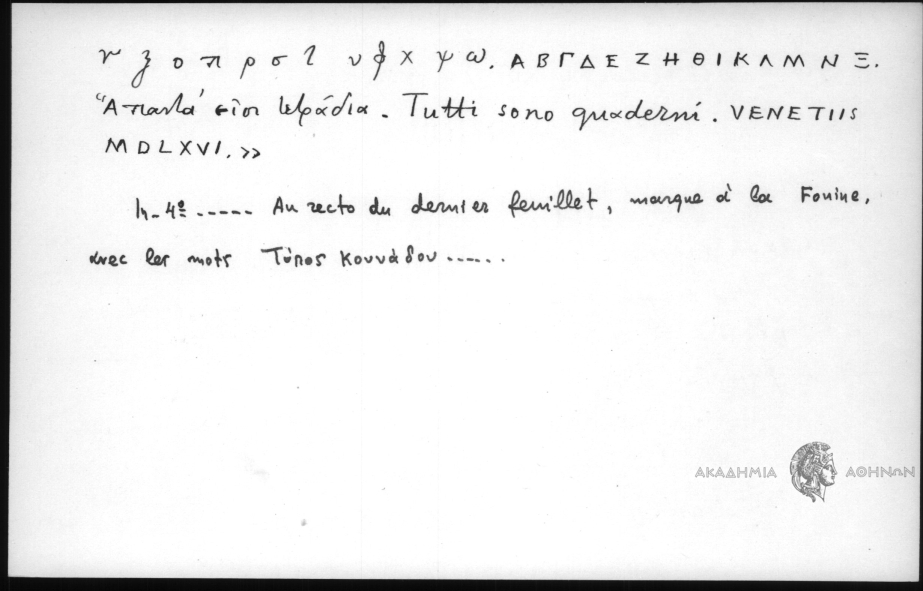 ν ξ ο π ρ σ τ υ φ χ ψ ω. Α Β Γ Δ Ε Ζ Η Θ Ι Κ Λ Μ Ν Ξ.
"Απαντά εἰσι τετράδια. Tutti sono quaderni. VENETIIS
MDLXVI. »
In-4º ----- Au recto du dernier feuillet, marque à la Fouine,
avec les mots Τύπος Κουνάδου ------
ΑΚΑΔΗΜΙΑ ΑΘΗΝΩΝ